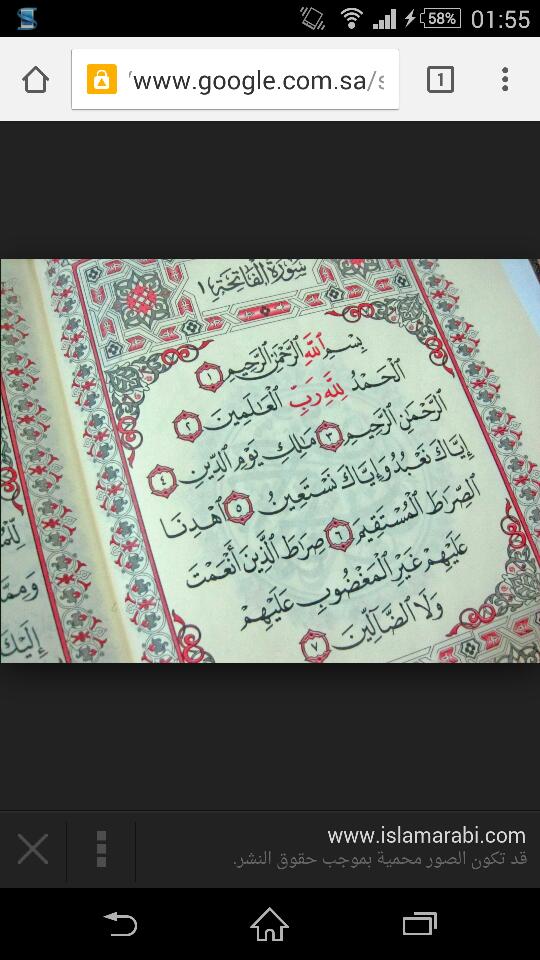 58% 01:55
www.google.com.sa/s
1
سُورَةُ الْفَاتِحَةِ ١
بِسْمِ اللَّهِ الرَّحْمَٰنِ الرَّحِيمِ ١
الْحَمْدُ لِلَّهِ رَبِّ الْعَالَمِينَ ٢
الرَّحْمَٰنِ الرَّحِيمِ ٣ مَالِكِ يَوْمِ الدِّينِ ٤
إِيَّاكَ نَعْبُدُ وَإِيَّاكَ نَسْتَعِينُ ٥ اهْدِنَا
الصِّرَاطَ الْمُسْتَقِيمَ ٦ صِرَاطَ الَّذِينَ أَنْعَمْتَ
عَلَيْهِمْ غَيْرِ الْمَغْضُوبِ عَلَيْهِمْ
وَلَا الضَّالِّينَ ٧
إِلَيْكَ
www.islamarabi.com
قد تكون الصور محمية بموجب حقوق النشر.